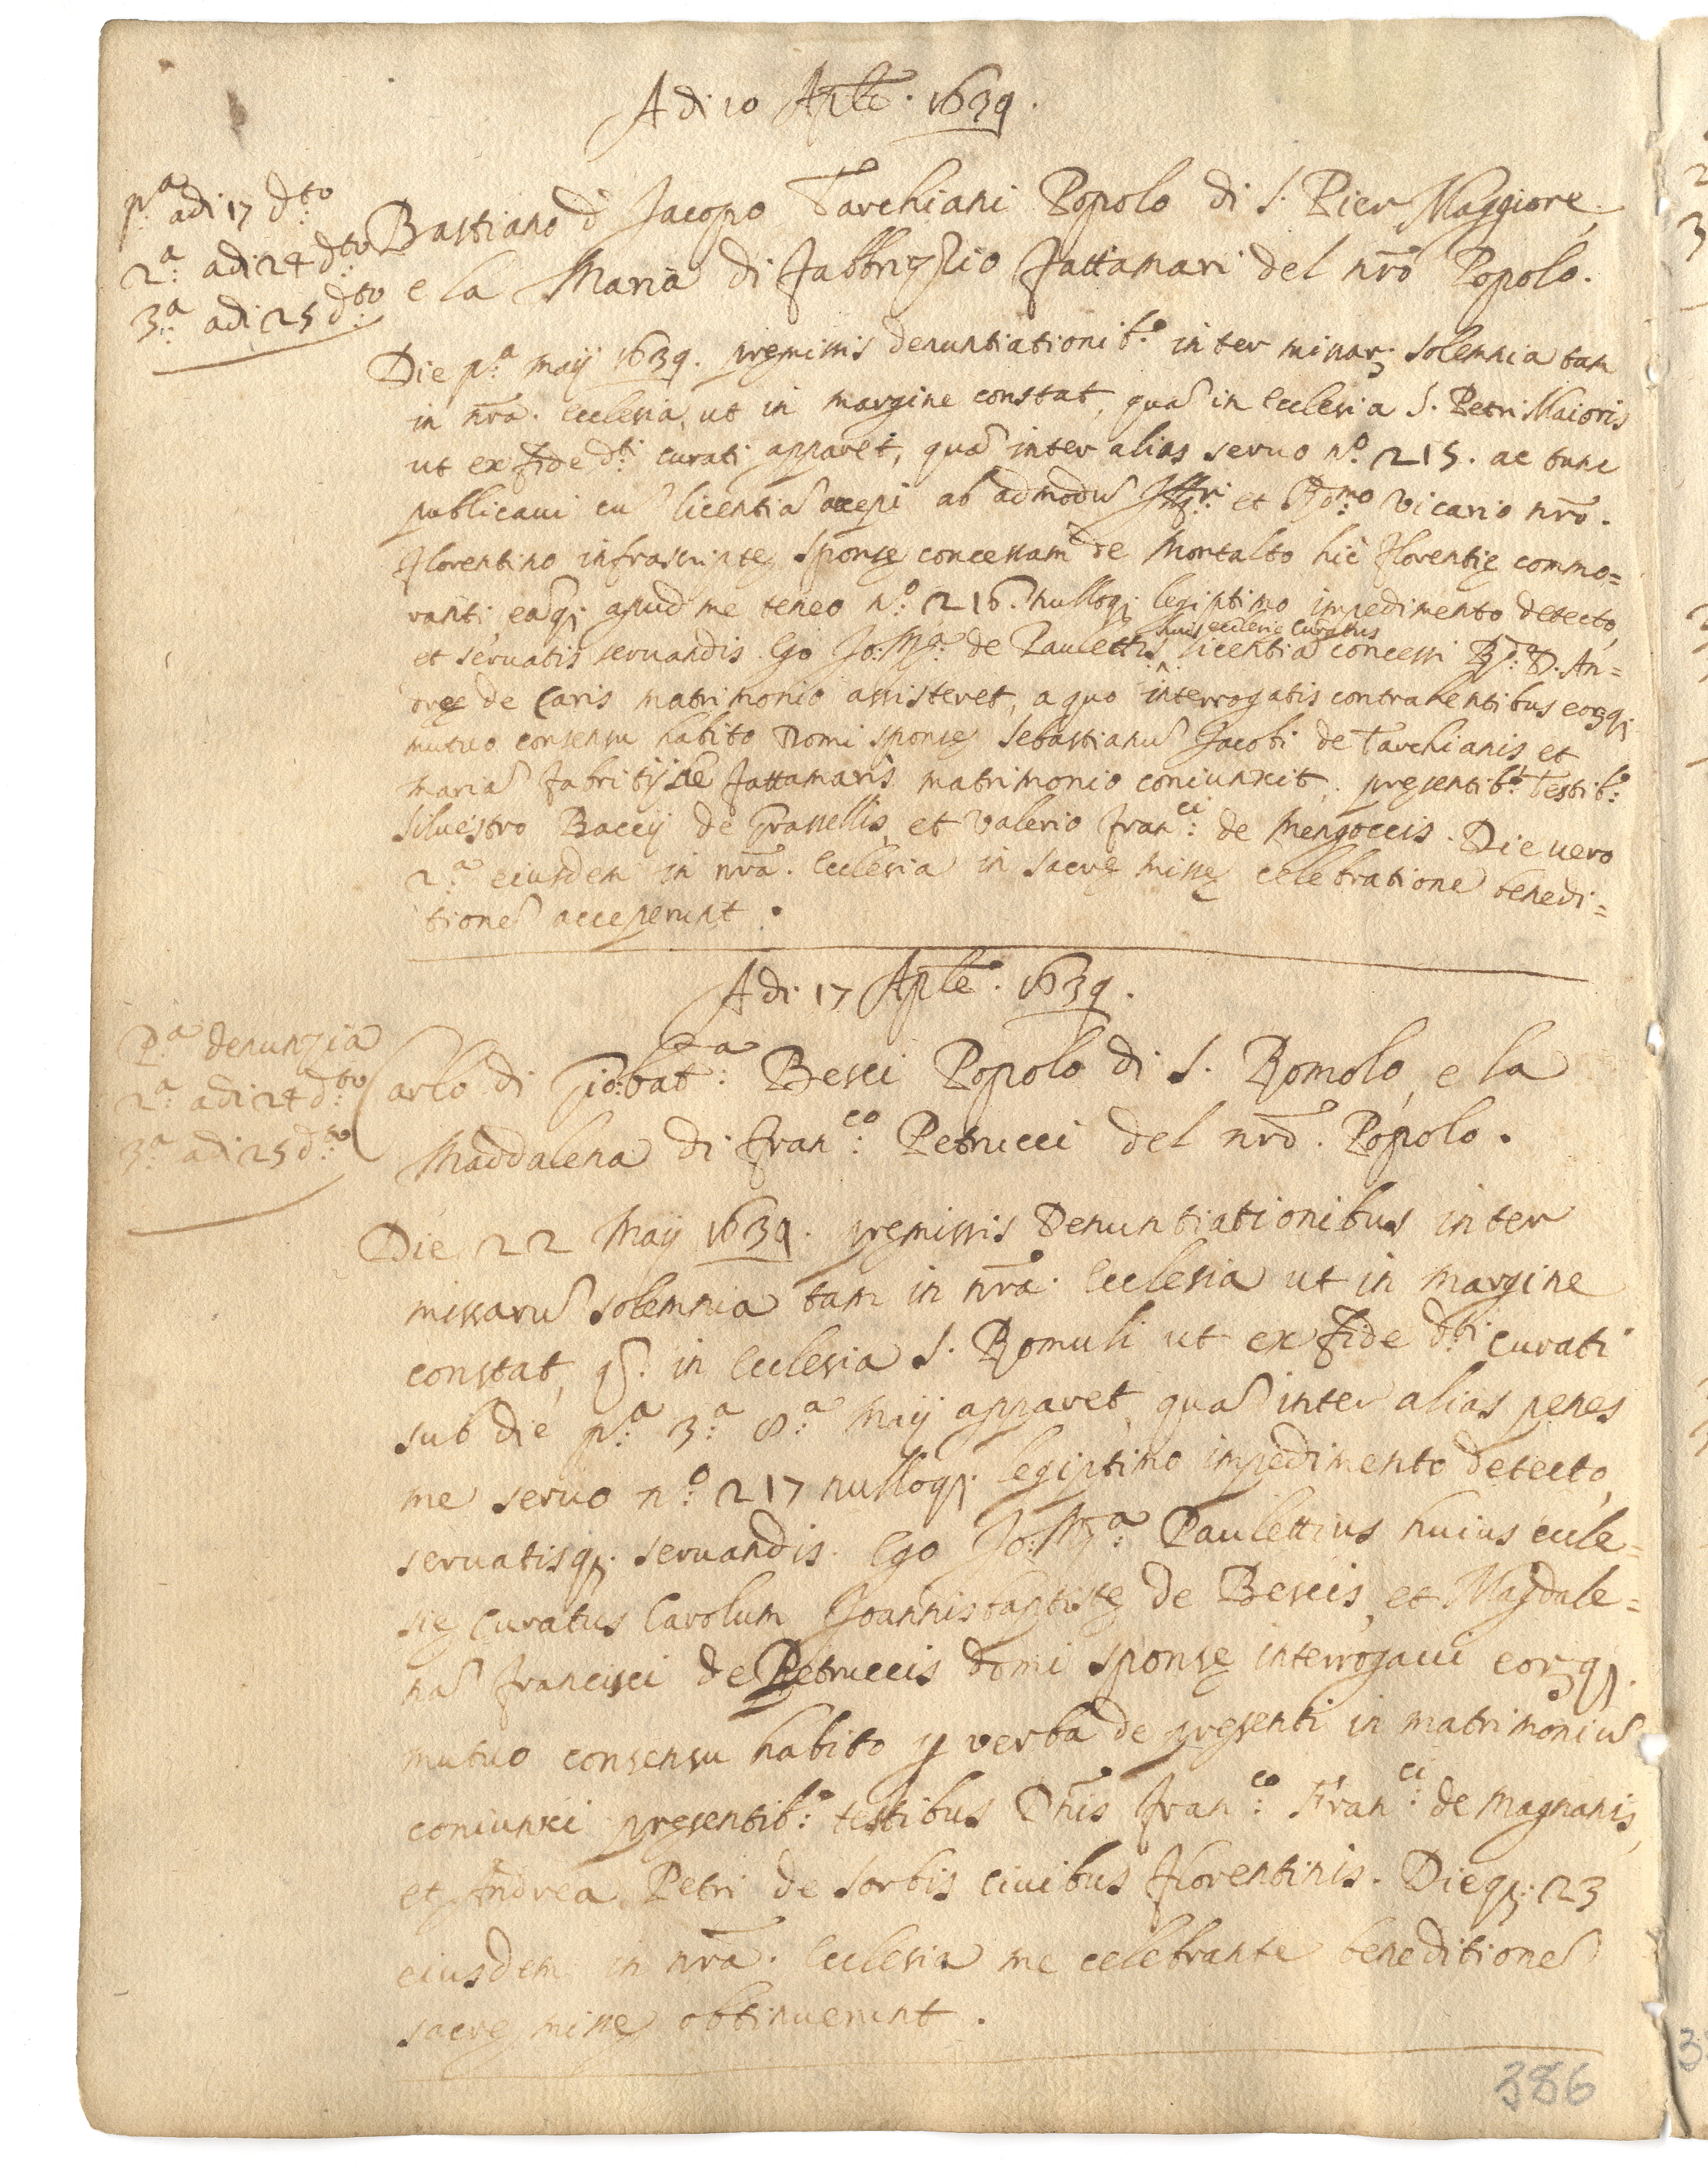 Adi 10 Aple. 1639.
p.a adi 17 d.to
2.a adi 24 d.to
3.a adi 25 d.to
Bastiano d Jacopo Tarchiani Popolo di S. Pier Maggiore,
e la Maria di Fabbrizio Fattamari del nro Popolo.
Die p.a Maij 1639. premissis denuntiationib.9 inter missar. solemnia tam
in nra. Ecclesia, ut in margine constat, qua in Ecclesia S. Petri Maioris
ut ex fide d.ti curati apparet, qua inter alias seruo n.o 215. ac tunc
publicaui cu licentia accepi ab admodu Ill.ri et R.mo Vicario nro.
Florentino infrascripte sponse concessam de Montalto hic Florentie commo=
ranti eaq; apud me teneo n.o 216. nulloq; legiptimo impedimento detecto,
et seruatis seruandis. Ego Jo: M.a de Paulettis licentia concessi R.do D. An=
huius ecclesie Curatus
dree de Caris matrimonio assisteret, a quo interrogatis contrahentibus eorq;
mutuo consensu habito Domi sponse Sebastianu Jacobi de Tarchianis et
Maria Fabritij de Fattamaris matrimonio coniunxit, presentib.9 Testib.9
Siluestro Baccij de Grasellis et Valerio Fran.ci de Mengoccis. Die uero
2.a eiusdem in nra. Ecclesia in sacre misse celebratione benedi=
tione acceperunt.
Adi 17 Aple. 1639.
P.a denunzia
2.a adi 24 d.to
3.a adi 25 d.to
Carlo di Gio:bat.a Besci Popolo di S. Romolo, e la
Maddalena di Fran.co Petrucci del nro. Popolo.
Die 22 Maij 1639. premissis Denuntiationibus inter
missaru solemnia tam in nra. Ecclesia ut in margine
constat, q. in Ecclesia S. Romuli ut ex fide d.ti curati
sub die p.a 3.a 8.a Maij apparet, qua inter alias penes
me seruo n.o 217 nulloq; legiptimo impedimento detecto,
seruatisq; seruandis. Ego Jo: M.a Paulettius huius eccle=
sie Curatus Carolum Joannisbaptiste de Bescis, et Magdale=
na Francisci de Petruccis domi sponse interrogaui eorq;
mutuo consensu habito p verba de presenti in matrimoniu
coniunxi presentib.9 testibus Dnis Fran.co Fran.ci de Magnanis,
et Andrea Petri de Sorbis ciuibus Florentinis. Dieq; 23
eiusdem in nra. Ecclesia me celebrante beneditione
sacre misse obtinuerunt.
386